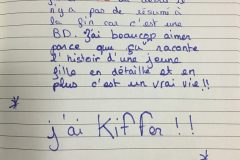 n'y a pas de résumé à
la fin car c'est une
BD. J'ai beaucoup aimer
parce que ça raconte
l'histoir d'une jeune
fille en détaille et en
plus c'est un vrai vie!!
j'ai Kiffer!!